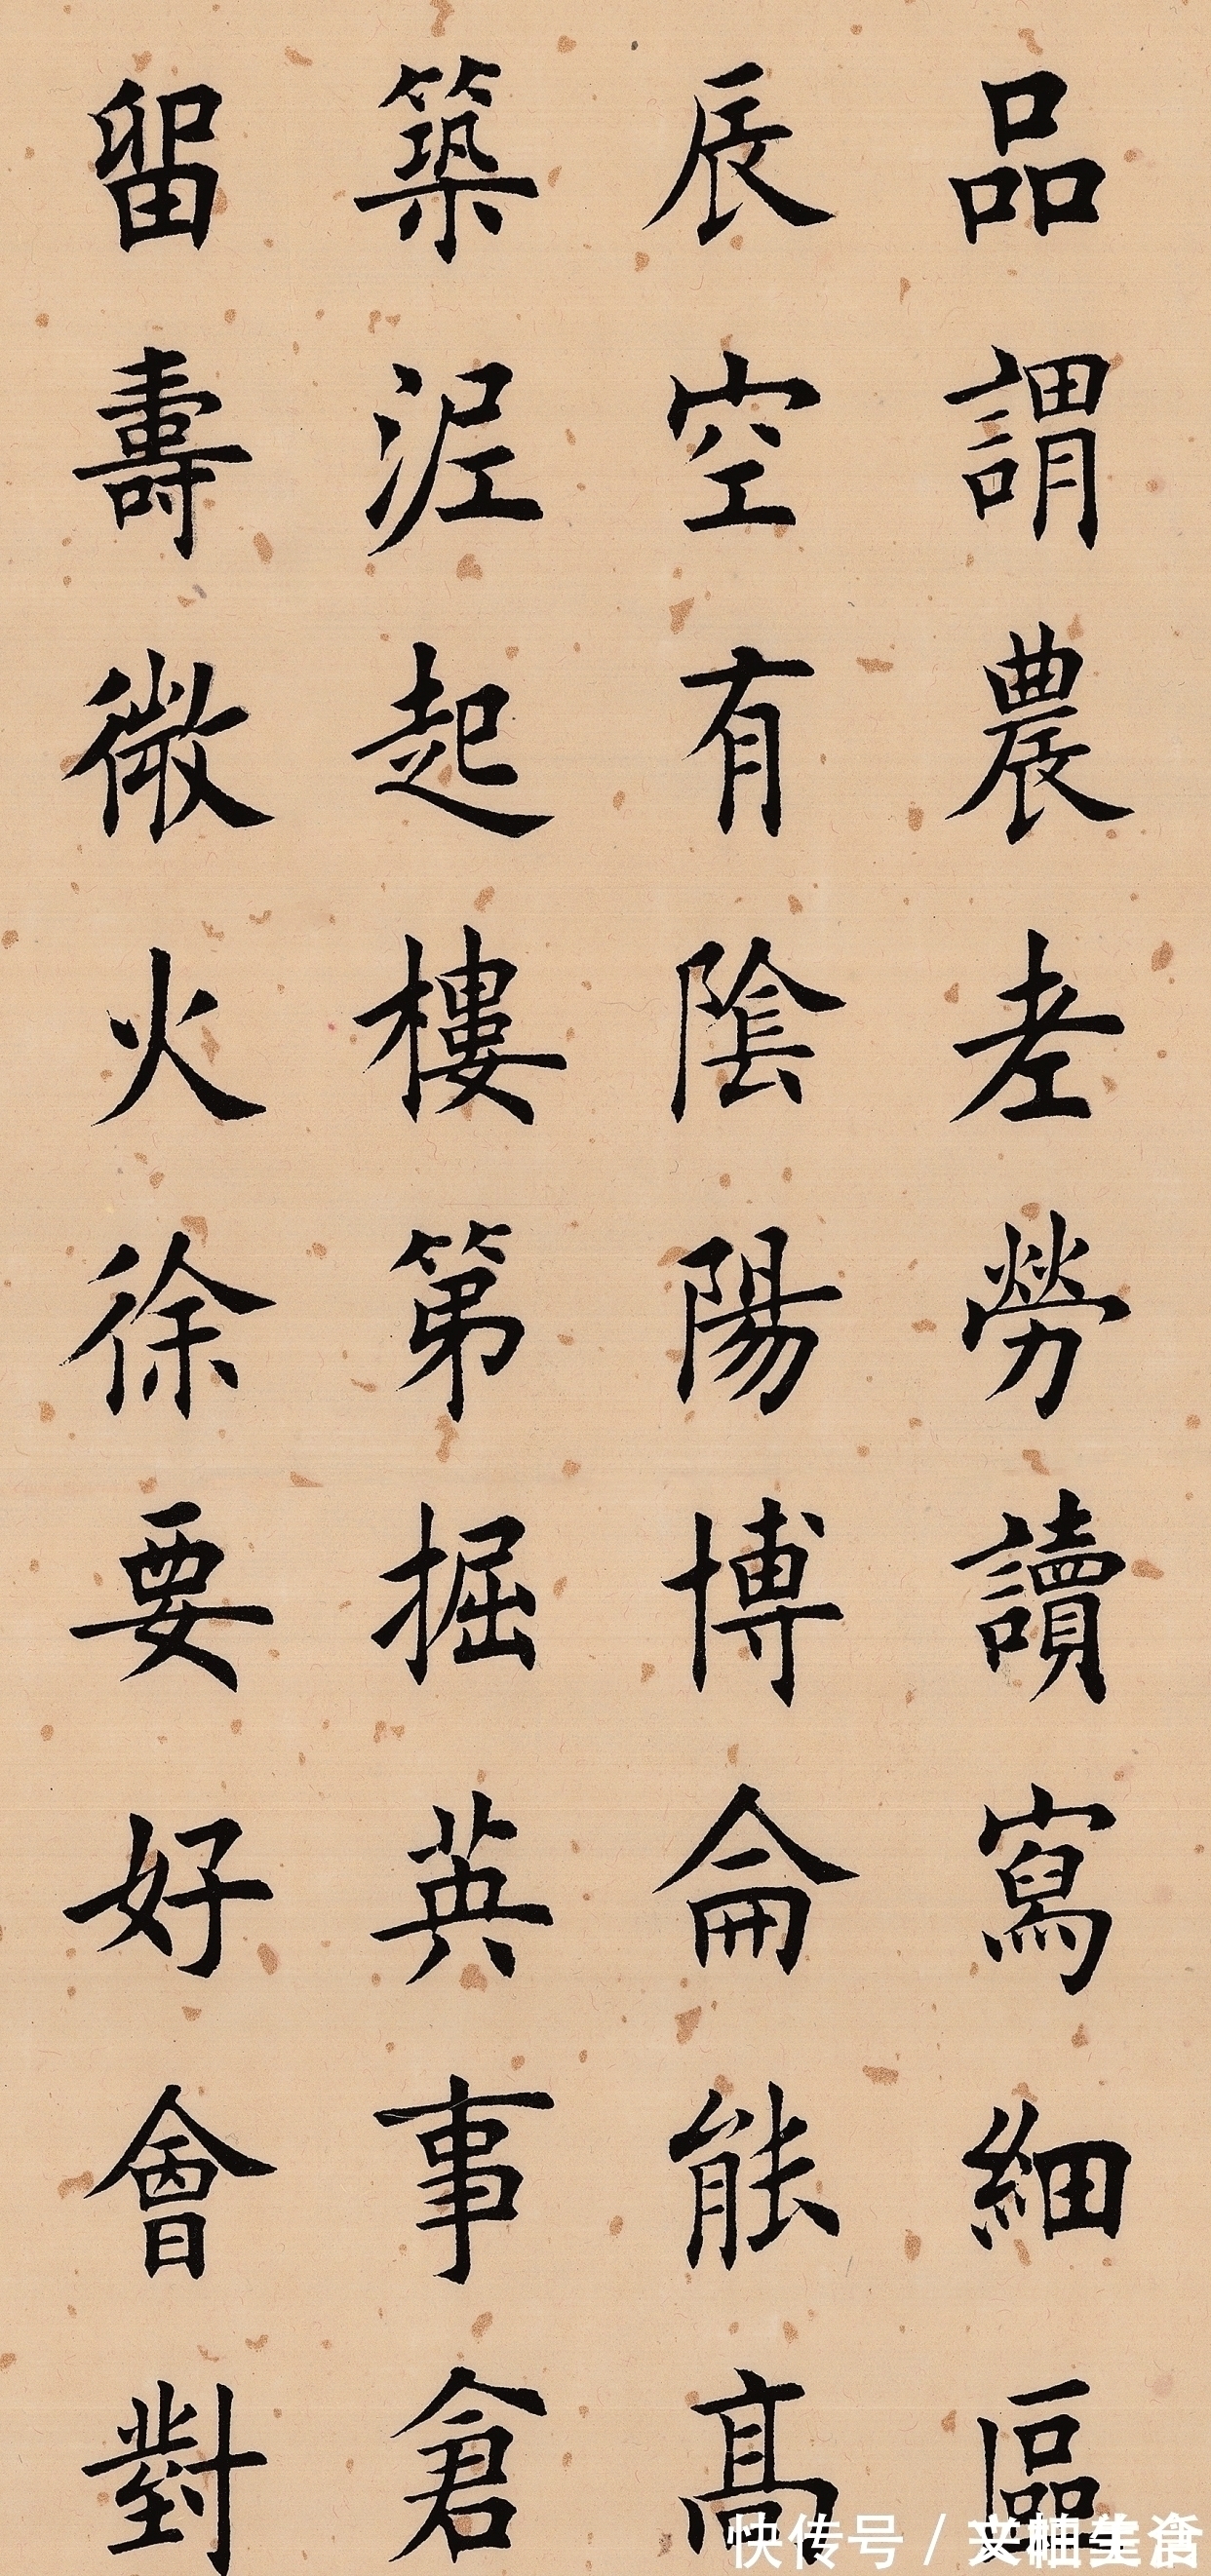 品謂農老勞讀寫細區
辰空有陰陽博侖能高
築泥起樓第掘英事倉
留壽微火徐要好會對
快传号／